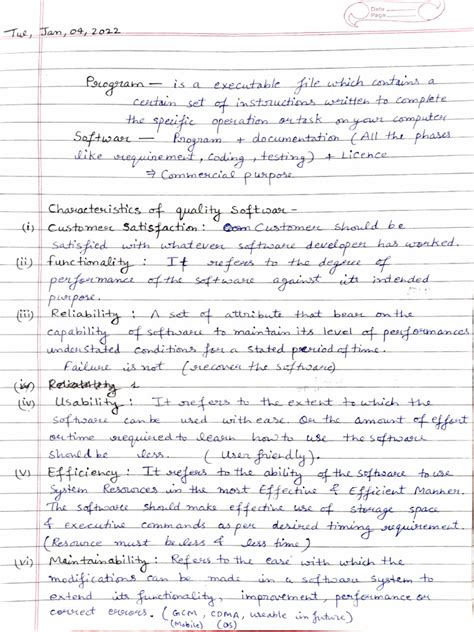 Date
Page
Tue, Jan, 04, 2022
Program — is a executable file which contains a
certain set of instructions written to complete
the specific operation or task on your computer
Software — Program + documentation (All the phases
like requirement, coding, testing) + Licence
⇒ Commercial purpose
Characteristics of quality Softwar -
(i) Customer Satisfaction: Customer should be
satisfied with whatever software developer has worked.
(ii) functionality : It refers to the degree of
performance of the software against its intended
purpose.
(iii) Reliability : A set of attribute that bear on the
capability of software to maintain its level of performances
understated conditions for a stated period of time.
Failure is not (recover the software)
(iv) Reliability
(iv) Usability : It refers to the extent to which the
software can be used with ease. Or the amount of effort
or time required to learn how to use the software
should be less. (User friendly).
(v) Efficiency : It refers to the ability of the software to use
System Resources in the most Effective & Efficient Manner.
The software should make effective use of storage space
& executive commands as per desired timing requirement.
(Resource must be less & less time)
(vi) Maintainability : Refers to the ease with which the
modifications can be made in a software system to
extend its functionality, improvement, performance or
correct errors. (GCM, CDMA, useable in future)
(Mobile) (OS)